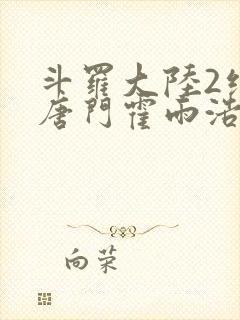 斗羅大陸2絕
唐門霍雨浩
向荣